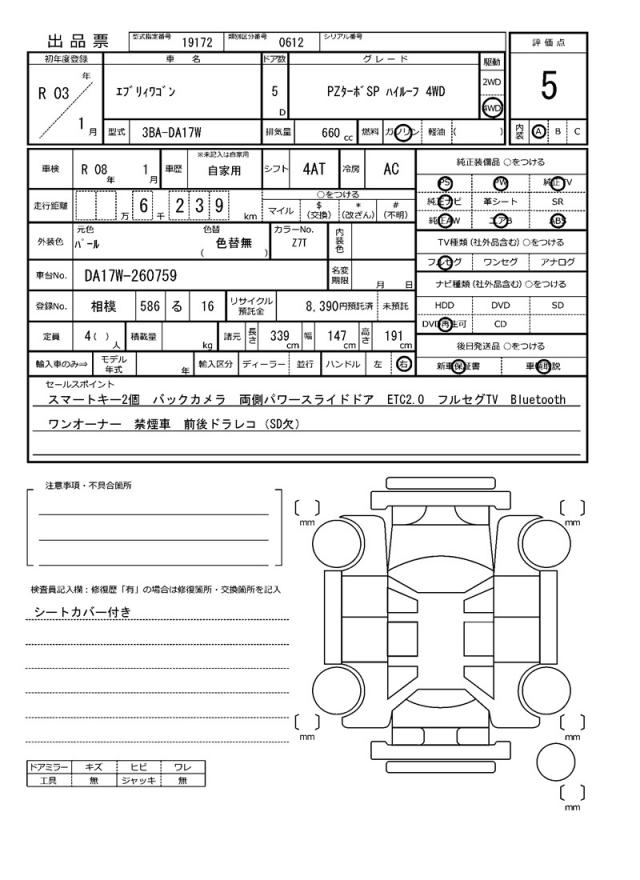 出品票 型式指定番号 19172 類別区分番号 0612 シリアル番号
評価点
5
初年度登録 車名 ドア数 グレード 駆動
R 03 年 1 月
エブリィワゴン 5 D PZターボSP ハイルーフ 4WD
2WD
4WD
型式 3BA-DA17W 排気量 660 cc 燃料 ガソリン 軽油 ( )
内装 A B C
車検 R 08 年 1 月 車歴 ※未記入は自家用 自家用 シフト 4AT 冷房 AC
走行距離 万 6 千 2 3 9 km ○をつける
マイル $ (交換) * (改ざん) # (不明)
外装色 元色 パール 色替 ( 色替無 ) カラーNo. Z7T 内装色
車台No. DA17W-260759 名変期限 月 日
登録No. 相模 586 る 16 リサイクル預託金 8,390円預託済 未預託
定員 4( ) 人 積載量 kg 諸元 長さ 339 cm 幅 147 cm 高さ 191 cm
輸入車のみ⇒ モデル年式 年 輸入区分 ディーラー 並行 ハンドル 左 右
純正装備品 ○をつける
PS PW 純正TV
純正ナビ 革シート SR
純正AW エアB ABS
TV種類 (社外品含む) ○をつける
フルセグ ワンセグ アナログ
ナビ種類 (社外品含む) ○をつける
HDD DVD SD
DVD再生可 CD
後日発送品 ○をつける
新車保証書 車輌取説
セールスポイント
スマートキー2個 バックカメラ 両側パワースライドドア ETC2.0 フルセグTV Bluetooth
ワンオーナー 禁煙車 前後ドラレコ (SD欠)
注意事項・不具合箇所
検査員記入欄：修復歴「有」の場合は修復箇所・交換箇所を記入
シートカバー付き
ドアミラー キズ ヒビ ワレ
工具 無 ジャッキ 無
mm
mm
mm
mm
mm